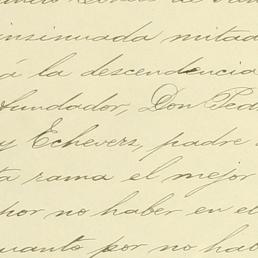 insinuada mitad
á la descendencia
fundador, Don Ped
y Echevers, padre
ta rama el mejor
por no haber en el
cuanto por no hab